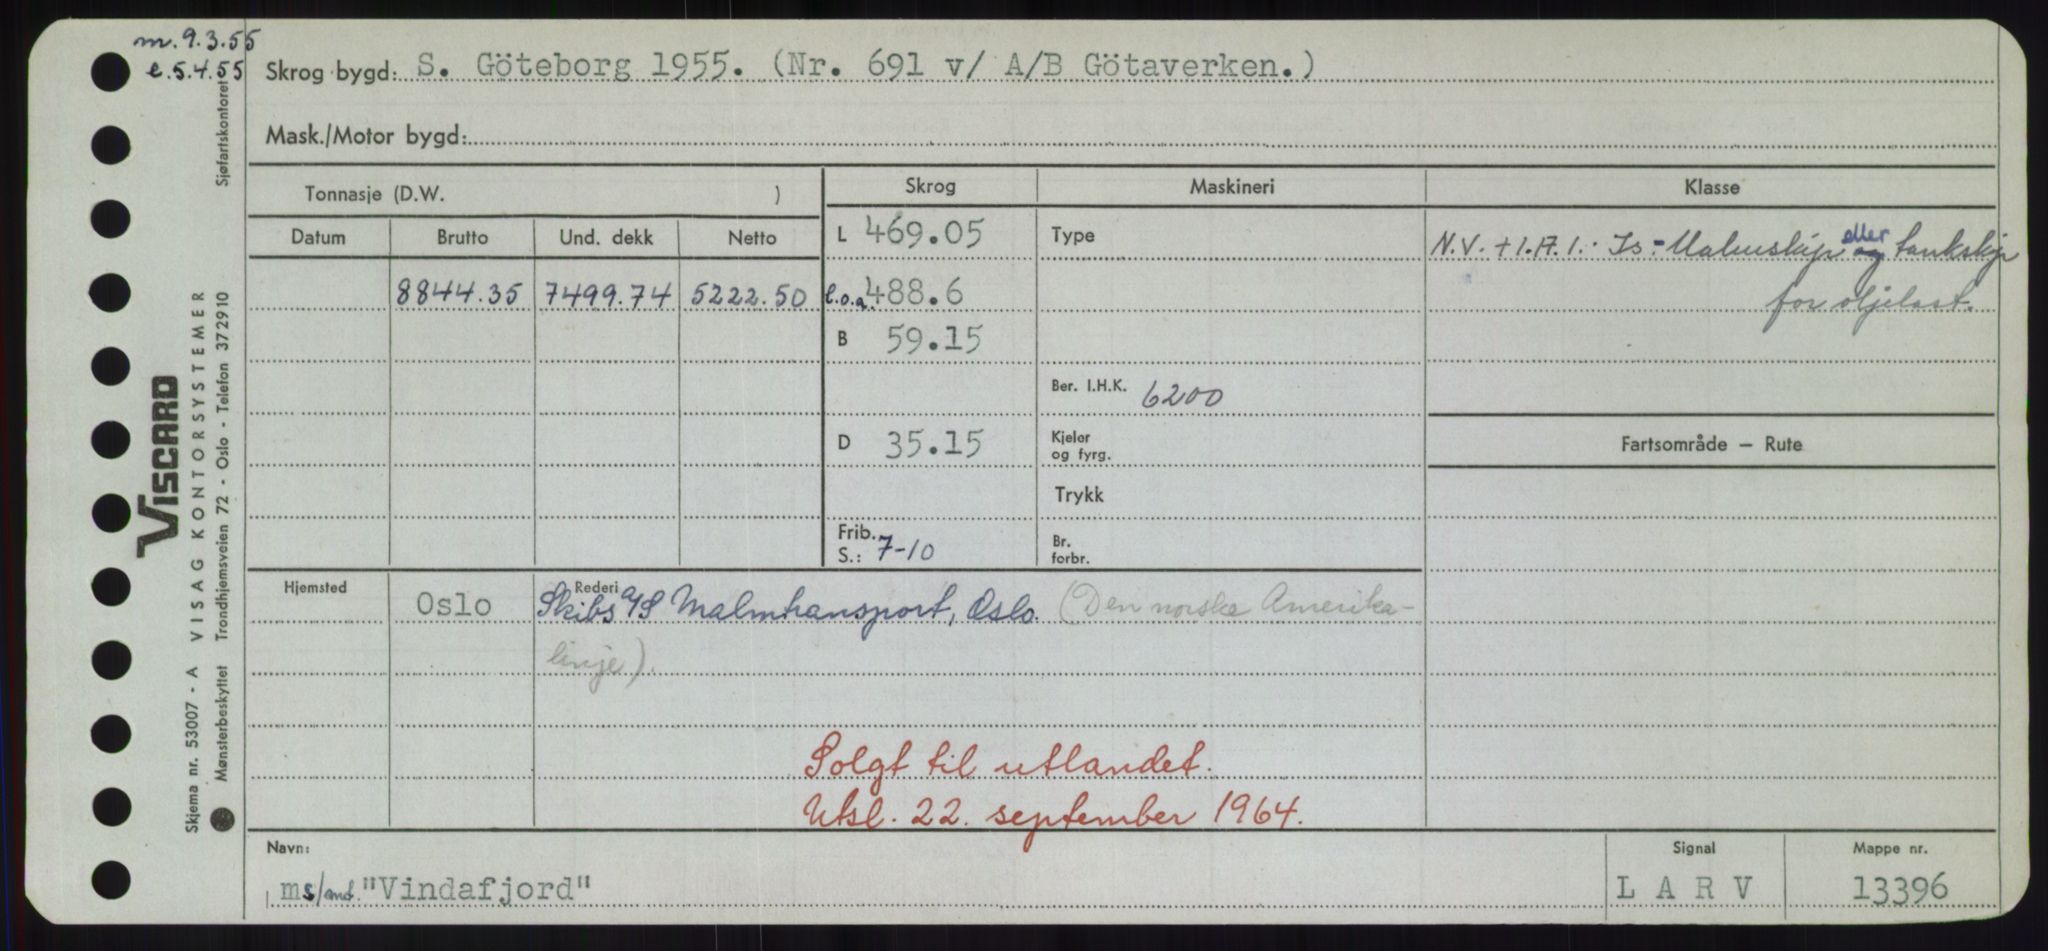 m. 9.3.55
e. 5.4.55
Skrog bygd: S. Göteborg 1955. (Nr. 691 v/ A/B Götaverken.)
Mask./Motor bygd:
Tonnasje (D.W. ) Skrog Maskineri Klasse
Datum Brutto Und. dekk Netto L 469.05 Type N.V. + 1.A.1. Is - Malmskip og eller tankskip
8844.35 7499.74 5222.50 l.o.a. 488.6 for oljelast.
B 59.15
Ber. I.H.K. 6200
D 35.15 Kjeler og fyrg. Fartsområde — Rute
Trykk
Frib. S.: 7-10 Br. forbr.
Hjemsted Rederi
Oslo Skibs A/S Malmtransport, Oslo. (Den norske Amerika-
linje).
Solgt til utlandet.
Utsl. 22. september 1964.
Navn: Signal Mappe nr.
ms/md. "Vindafjord" L A R V 13396
Sjøfartskontoret
VISCARD
Skjema nr. 53007 - A VISAG KONTORSYSTEMER
Mønsterbeskyttet Trondhjemsveien 72 - Oslo - Telefon 372910